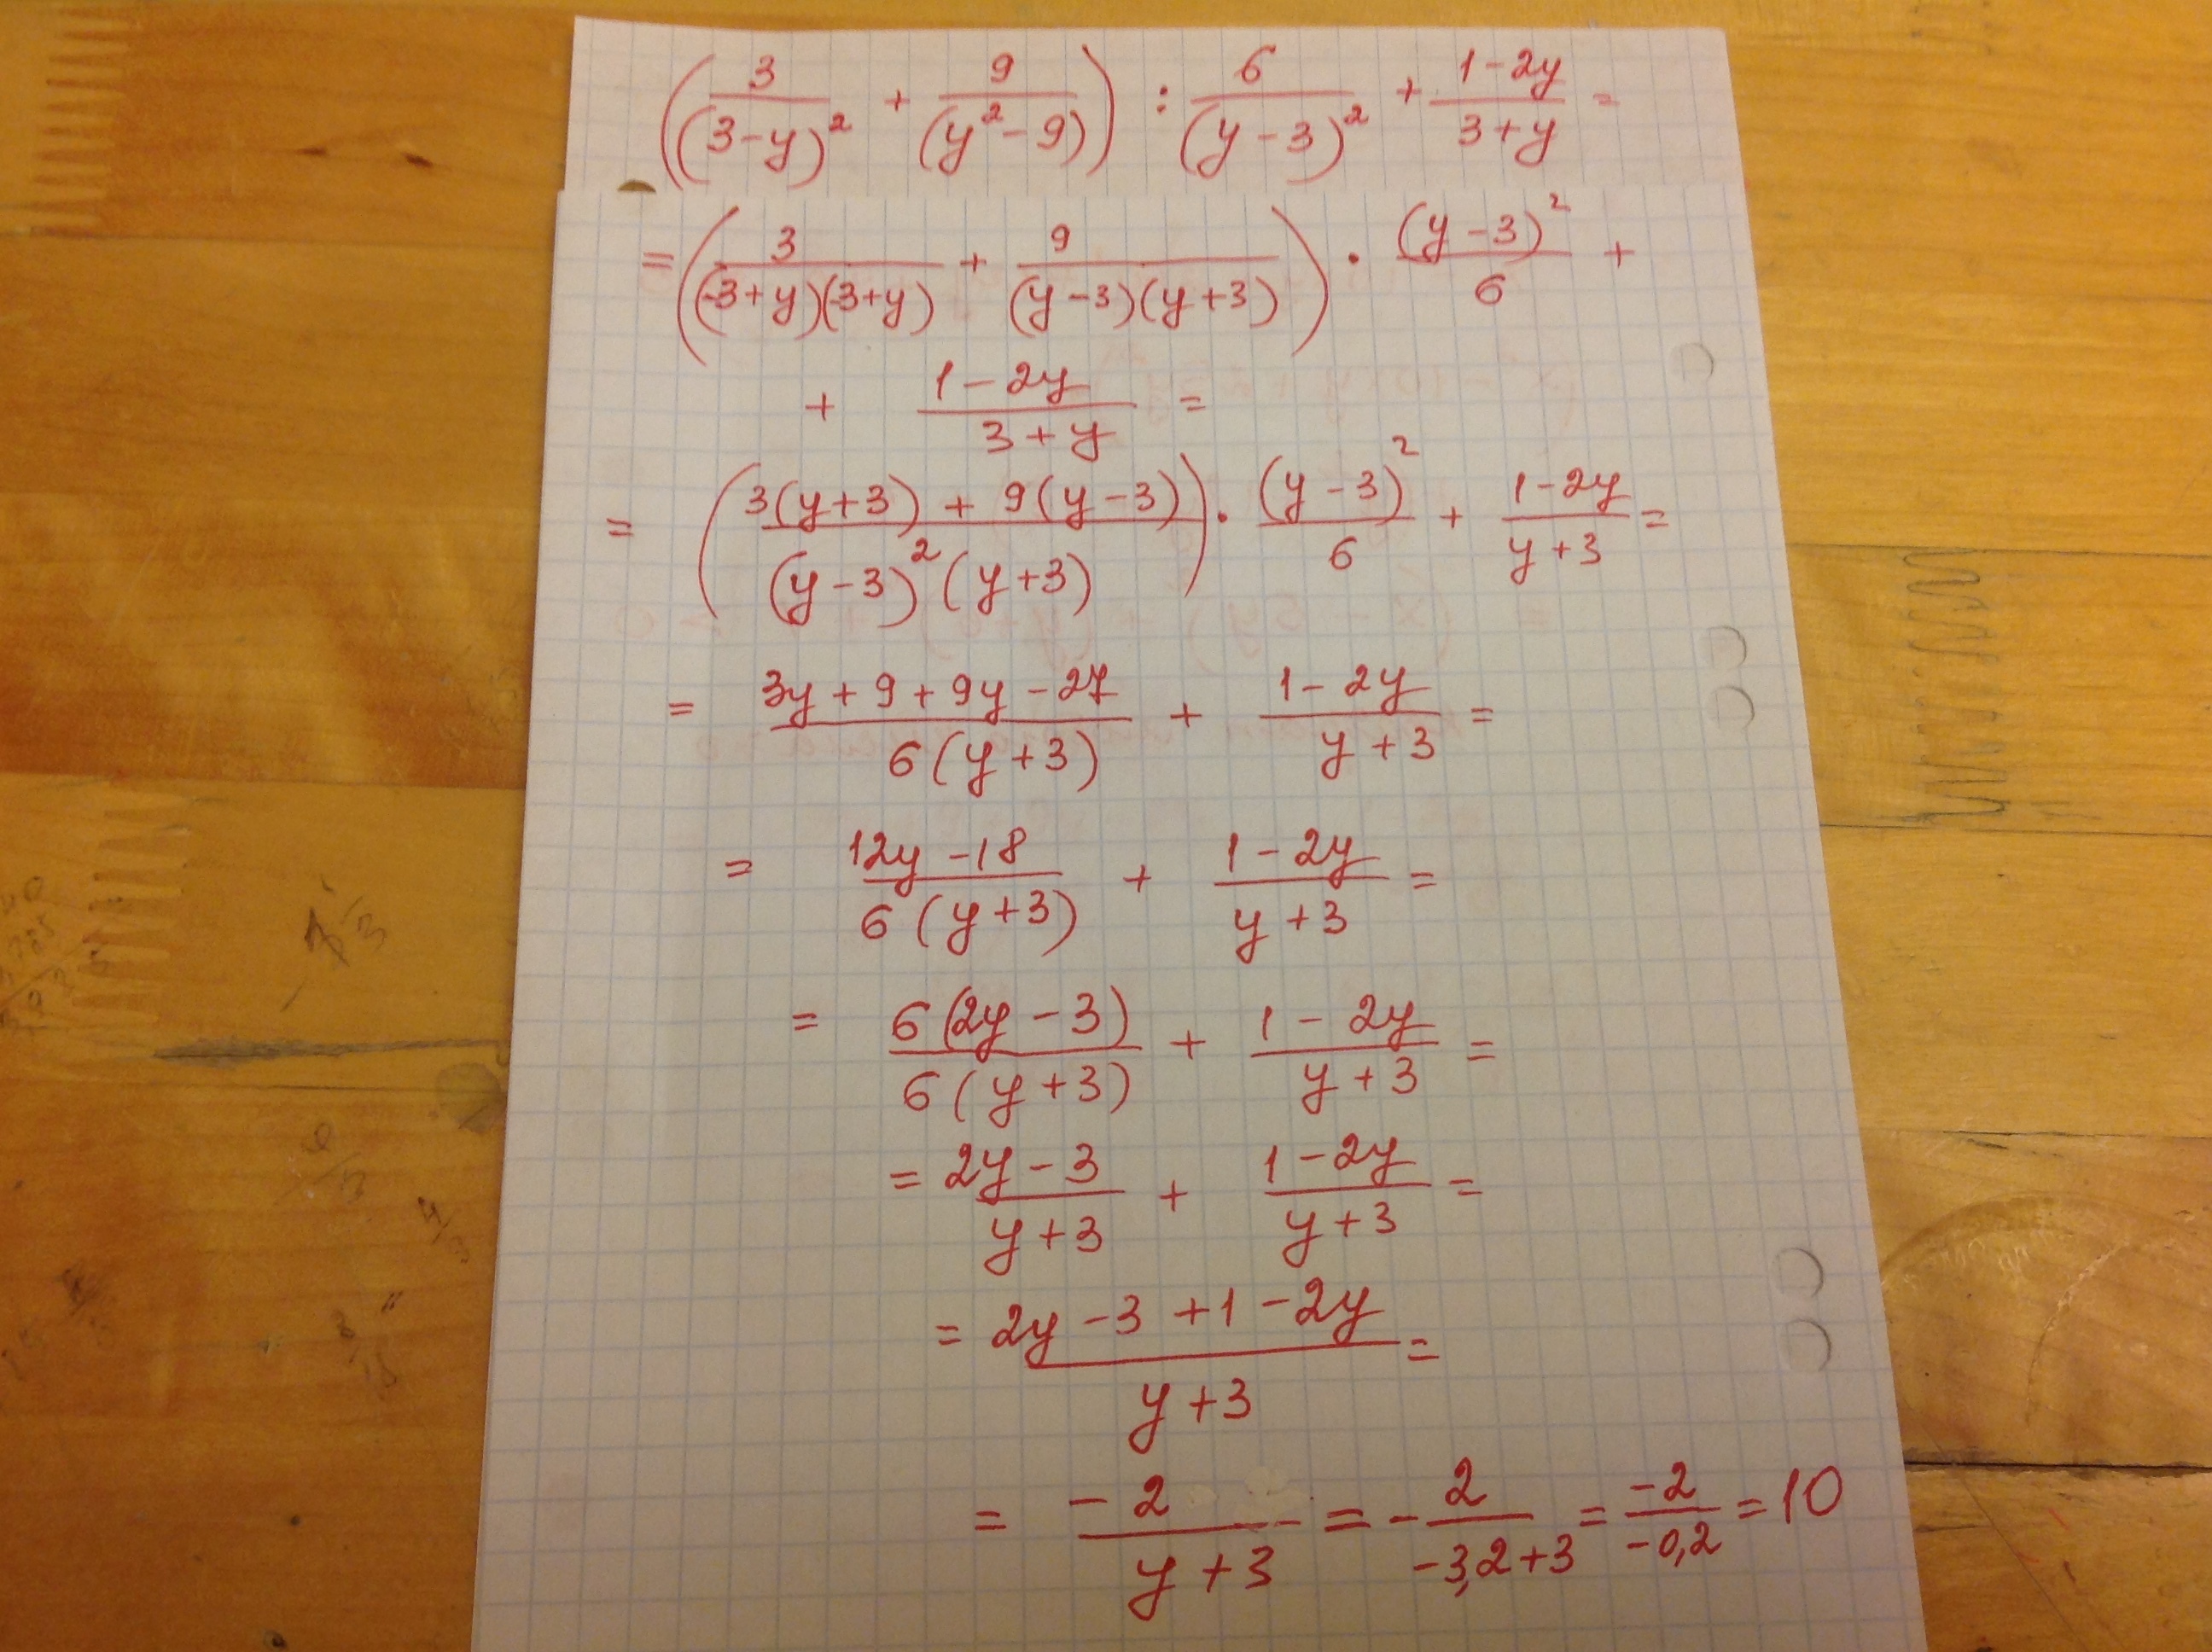 (3/(3-y)² + 9/(y²-9)) : 6/(y-3)² + (1-2y)/(3+y) =
= (3/((-3+y)(-3+y)) + 9/((y-3)(y+3))) · (y-3)²/6 +
+ (1-2y)/(3+y) =
= ((3(y+3) + 9(y-3))/((y-3)²(y+3))) · (y-3)²/6 + (1-2y)/(y+3) =
= (3y+9+9y-27)/(6(y+3)) + (1-2y)/(y+3) =
= (12y-18)/(6(y+3)) + (1-2y)/(y+3) =
= 6(2y-3)/(6(y+3)) + (1-2y)/(y+3) =
= (2y-3)/(y+3) + (1-2y)/(y+3) =
= (2y-3+1-2y)/(y+3) =
= -2/(y+3) = - 2/(-3,2+3) = -2/-0,2 = 10